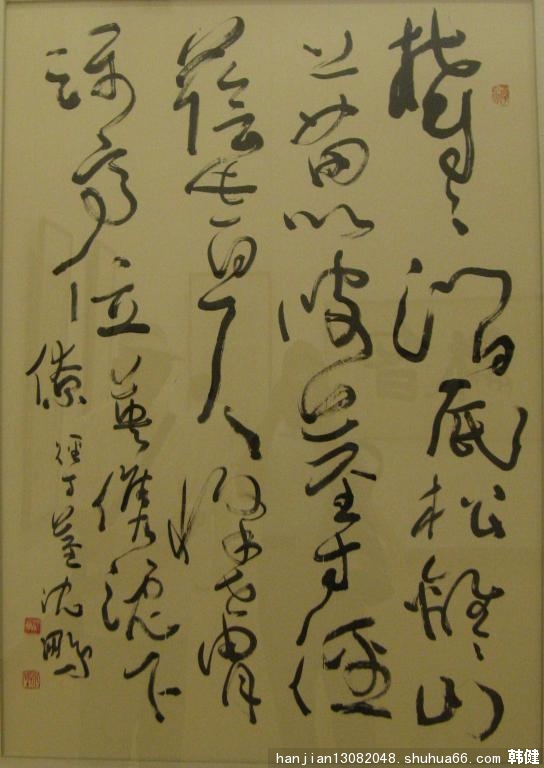 鬱〻澗底松離〻山
上苗以彼莖寸徑
蔭此百尺條世胄
躡高位英俊沈下
僚 徑寸莖 沈鵬
hanjian13082048.shuhua66.com 韩健